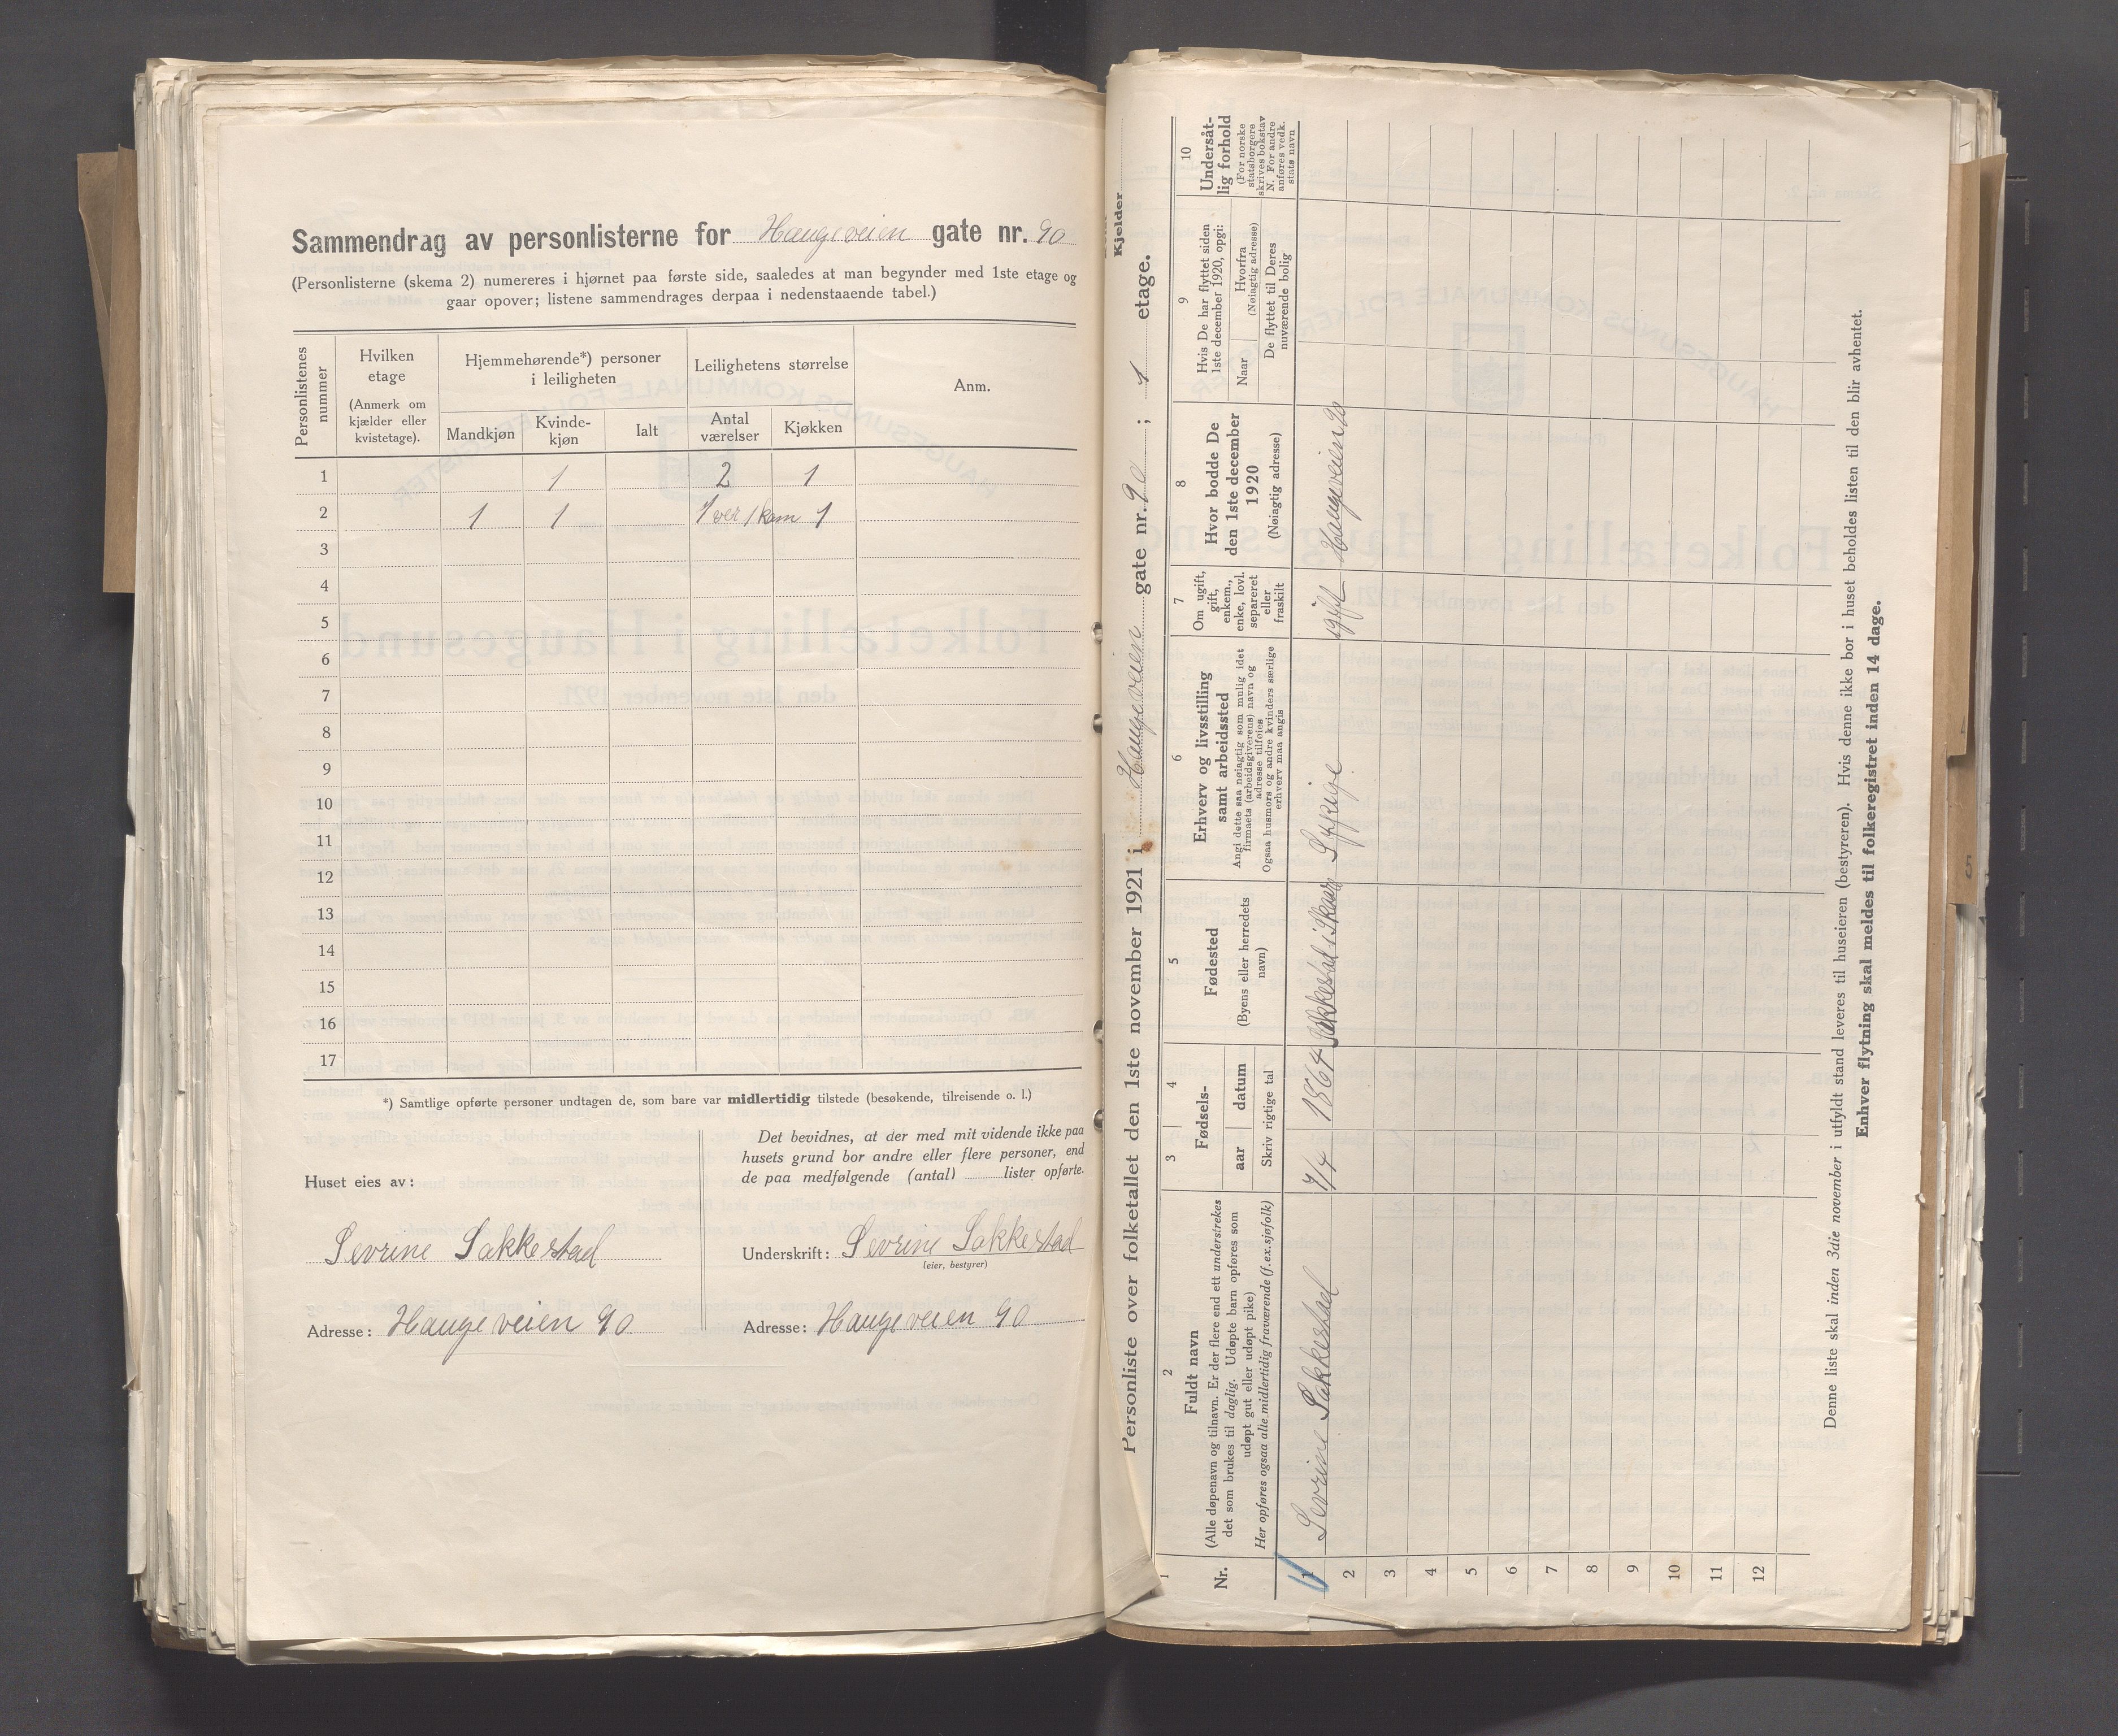 Sammendrag av personlisterne for Haugeveien gate nr. 90
(Personlisterne (skema 2) numereres i hjørnet paa første side, saaledes at man begynder med 1ste etage og
gaar opover; listene sammendrages derpaa i nedenstaaende tabel.)
Personlistenes nummer
Hvilken etage (Anmerk om kjælder eller kvistetage).
Hjemmehørende*) personer i leiligheten
Mandkjøn Kvinde-kjøn Ialt
Leilighetens størrelse
Antal værelser Kjøkken
Anm.
1 1 2 1
2 1 1 1 ver 1 kam 1
3
4
5
6
7
8
9
10
11
12
13
14
15
16
17
*) Samtlige opførte personer undtagen de, som bare var midlertidig tilstede (besøkende, tilreisende o. l.)
Huset eies av:
Sevrine Sakkestad
Adresse: Haugeveien 90
Det bevidnes, at der med mit vidende ikke paa
husets grund bor andre eller flere personer, end
de paa medfølgende (antal) lister opførte.
Underskrift: Sevrine Sakkestad
(eier, bestyrer)
Adresse: Haugeveien 90
Kjelder
Personliste over folketallet den 1ste november 1921 i Haugeveien gate nr. 90 ; 1 etage.
1
Nr.
2
Fuldt navn
(Alle døpenavn og tilnavn. Er der flere end ett understrekes
det som brukes til daglig. Udøpte barn opføres som
udøpt gut eller udøpt pike)
Her opføres ogsaa alle midlertidig fraværende (f.ex.sjøfolk)
3 4
Fødsels-
aar datum
Skriv rigtige tal
5
Fødested
(Byens eller herredets
navn)
6
Erhverv og livsstilling
samt arbeidssted
Angi dette saa nøiagtig som mulig idet
firmaets (arbeidsgiverens) navn og
adresse tilføies
Ogsaa husmors og andre kvinders særlige
erhverv maa angis
7
Om ugift,
gift,
enkem.,
enke, lovl.
separeret
eller
fraskilt
8
Hvor bodde De
den 1ste december
1920
(Nøiagtig adresse)
9
Hvis De har flyttet siden
1ste december 1920, opgi:
Naar
Hvorfra
(Nøiagtig adresse)
De flyttet til Deres
nuværende bolig
10
Undersåt-
lig forhold
(For norske
statsborgere
skrives bokstav
N. For andre
anføres vedk.
stats navn
1 Sevrine Sakkestad 7/4 1864 Sakkestad i Skaare Sypige ugift Haugeveien 90
2
3
4
5
6
7
8
9
10
11
12
Denne liste skal inden 3die november i utfyldt stand leveres til huseieren (bestyreren). Hvis denne ikke bor i huset beholdes listen til den blir avhentet.
Enhver flytning skal meldes til folkeregistret inden 14 dage.